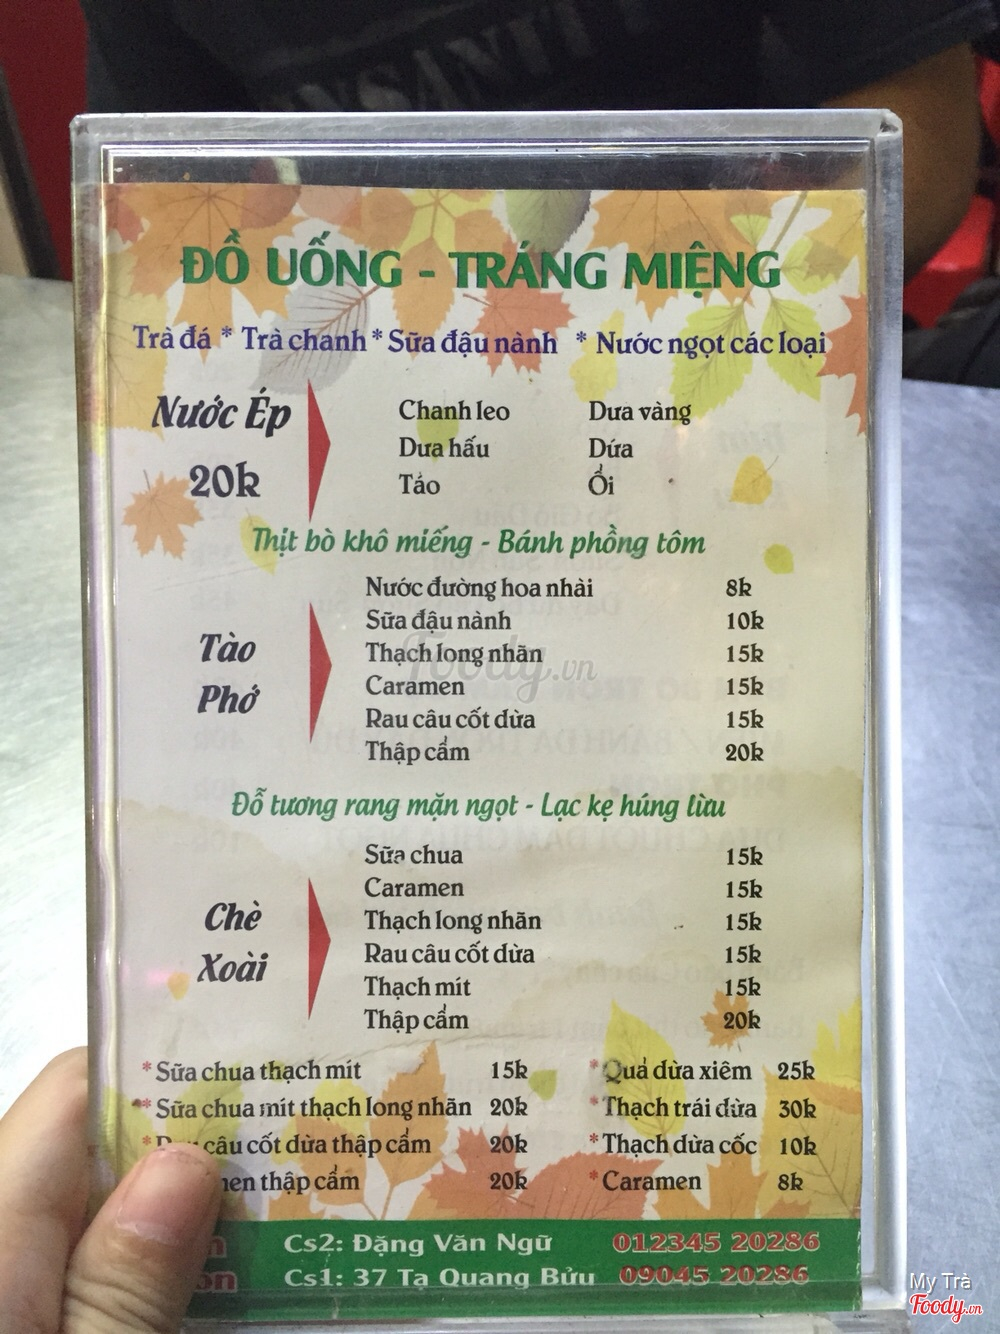 ĐỒ UỐNG - TRÁNG MIỆNG
Trà đá * Trà chanh * Sữa đậu nành * Nước ngọt các loại
Nước Ép
20k
Chanh leo Dưa vàng
Dưa hấu Dứa
Táo Ổi
Thịt bò khô miếng - Bánh phồng tôm
Tào
Phớ
Nước đường hoa nhài 8k
Sữa đậu nành 10k
Thạch long nhãn 15k
Caramen 15k
Rau câu cốt dừa 15k
Thập cẩm 20k
Đỗ tương rang mặn ngọt - Lạc kẹ húng lừu
Chè
Xoài
Sữa chua 15k
Caramen 15k
Thạch long nhãn 15k
Rau câu cốt dừa 15k
Thạch mít 15k
Thập cẩm 20k
* Sữa chua thạch mít 15k
* Sữa chua mít thạch long nhãn 20k
* câu cốt dừa thập cẩm 20k
thập cẩm 20k
* Quả dừa xiêm 25k
* Thạch trái dừa 30k
* Thạch dừa cốc 10k
* Caramen 8k
Cs2: Đặng Văn Ngữ 012345 20286
Cs1: 37 Tạ Quang Bửu 09045 20286
Foody.vn
My Trà
Foody.vn